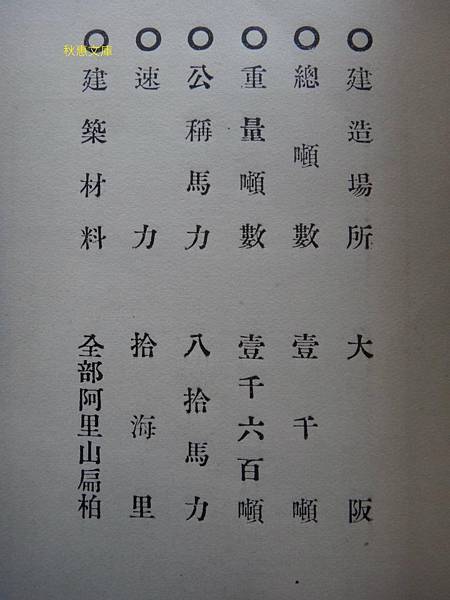 秋惠文庫
◎建造場所 大阪
◎總噸數 壹千噸
◎重量噸數 壹千六百噸
◎公稱馬力 八拾馬力
◎速力 拾海里
◎建築材料 全部阿里山扁柏